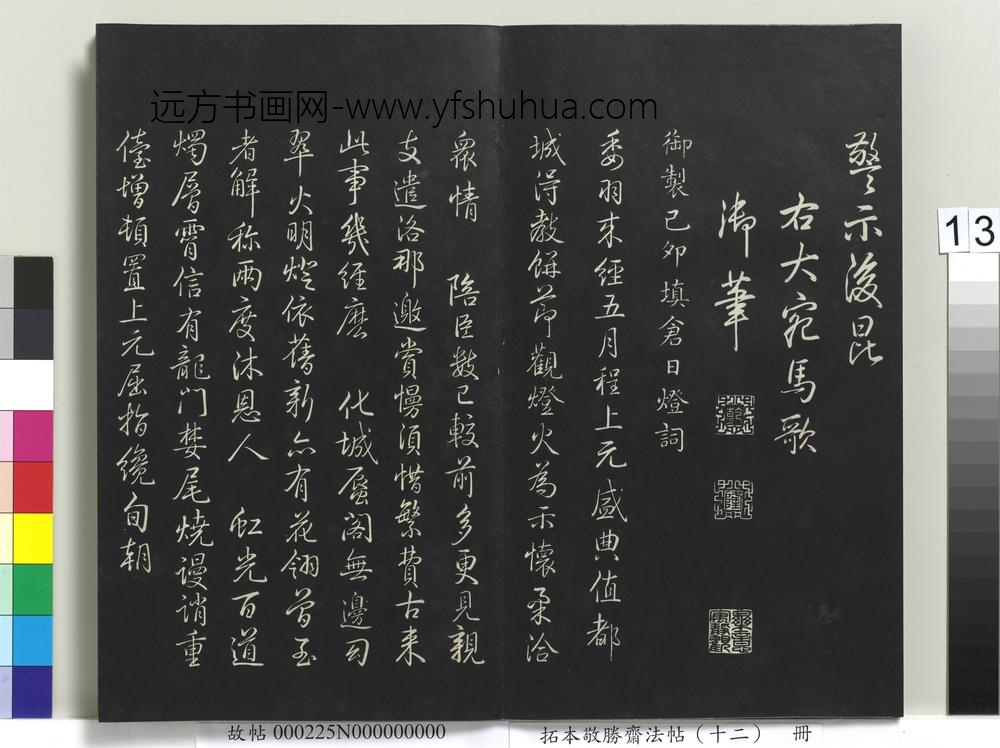 警示後昆
右大宛馬歌
御筆
御製己卯填倉日燈詞
委羽來經五月程上元盛典值都
城浮教餅節觀燈火為示懷柔洽
衆情 陪臣數已較前多更見親
支遣洛那邀賞慢須惜繁費古来
此事幾經麽 化城蜃閣無邊勾
翠火明燈依舊新亦有花翎曾至
者解称兩度沐恩人 虹光百道
燭層霄信有龍門焚尾燒謾誚重
儓增頓置上元屈指纔旬朝
远方书画网-www.yfshuhua.com
13
故帖 000225N000000000
拓本敬勝齋法帖（十二） 冊